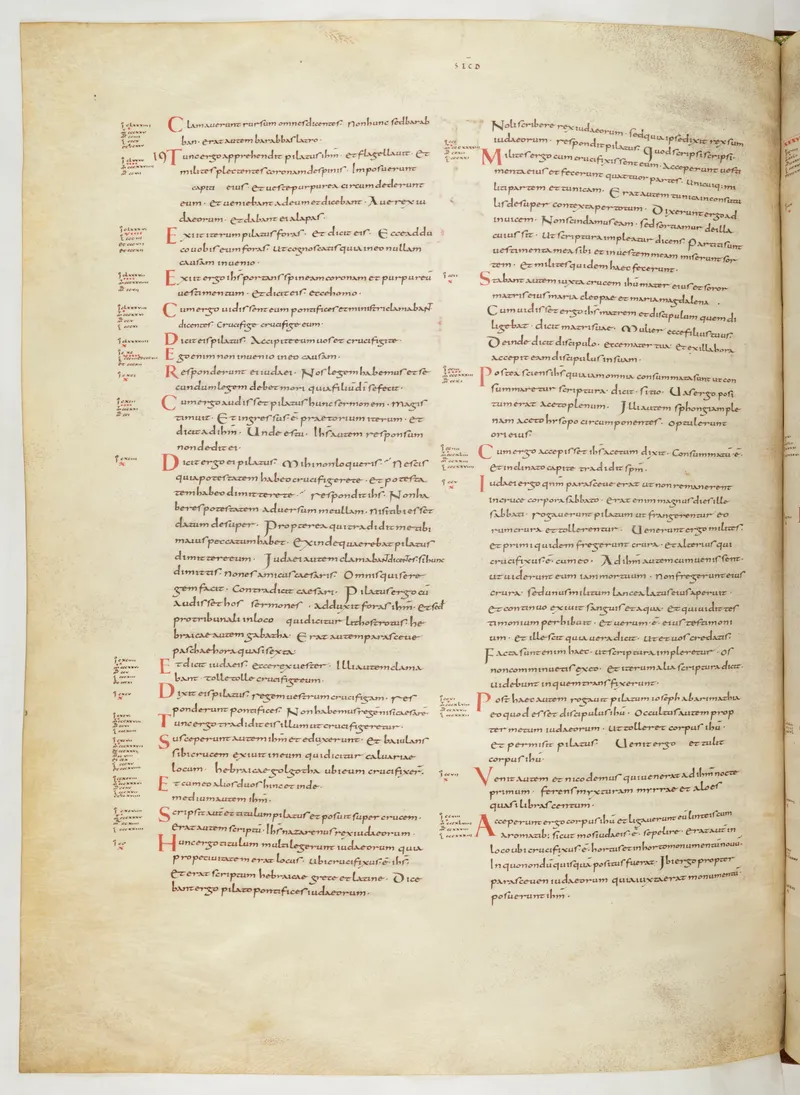 SECD
Clamauerunt rursum omnes dicentes· Non hunc sed barab
ban· erat autem barabbas latro·
19 Tunc ergo apprehendit pilatus ihm̄· et flagellauit· Et
milites plectentes coronam de spinis· Imposuerunt
capiti eius· Et ueste purpurea circumdederunt
eum· Et ueniebant ad eum et dicebant· Aue rex iu
daeorum· et dabant ei alapas·
Exiit iterum pilatus foras· Et dicit eis· Ecce addu
co uobis eum foras· Ut cognoscatis quia in eo nullam
causam inuenio·
Exiit ergo ihs̄ portans spineam coronam et purpureū
uestimentum· Et dicit eis· ecce homo·
Cum ergo uidissent eum pontifices et ministri clamabant
dicentes· Crucifige crucifige eum·
Dicit eis pilatus· Accipite eum uos et crucifigite·
Ego enim non inuenio in eo causam·
Responderunt ei iudaei· Nos legem habemus et se
cundum legem debet mori quia filiū dī se fecit·
Cum ergo audisset pilatus hunc sermonem· magis
timuit· Et ingressus ē praetorium iterum· et
dicit ad ihm̄· Unde es tu· Ihs̄ autem responsum
non dedit ei·
Dicit ergo ei pilatus· Mihi non loqueris· Nescis
quia potestatem habeo crucifigere te· et potesta
tem habeo dimittere te· respondit ihs̄· Non ha
beres potestatem aduersum me ullam· nisi tibi esset
datum desuper· Propterea qui tradidit me tibi
maius peccatum habet· Exinde quaerebat pilatus
dimittere eum· Judaei autem clamabant dicentes· si hunc
dimittis· non es amicus caesaris· Omnis qui se re
gem facit· Contradicit caesari· Pilatus ergo cū
audisset hos sermones· adduxit foras ihm̄· et sed
pro tribunali in loco qui dicitur lithostrotus· he
braicae autem gabatha· Erat autem parasceue
paschae hora quasi sexta·
Et dicit iudaeis· ecce rex uester· Illi autem clama
bant· tolle tolle crucifige eum·
Dixit eis pilatus· regem uestrum crucifigam· res
ponderunt pontifices· Non habemus regem nisi caesarē·
Tunc ergo tradidit eis illum ut crucifigeretur·
Susceperunt autem ihm̄ et eduxerunt· Et baiulans
sibi crucem exiuit in eum qui dicitur caluariae
locum· hebraicae golgotha· ubi eum crucifixer̄·
Et cum eo alios duos hinc et inde·
medium autem ihm̄·
Scripsit autē et titulum pilatus et posuit super crucem·
Erat autem scriptū· Ihs̄ nazarenus rex iudaeorum·
Hunc ergo titulum multi legerunt iudaeorum quia
prope ciuitatem erat locus· ubi crucifixus ē ihs̄·
et erat scriptum hebraicae grece et latine· Dice
bant ergo pilato pontifices iudaeorum·
Noli scribere rex iudaeorum· sed quia ipse dixit rex sum
iudaeorum· respondit pilatus· Quod scripsi scripsi·
Milites ergo cum crucifixissent eum· Acceperunt uesti
menta eius et fecerunt quattuor partes· Unicuiq; mi
liti partem et tunicam· Erat autem tunica inconsuti
lis desuper contexta per totum· Dixerunt ergo ad
inuicem· Non scindamus eam· sed sortiamur de illa
cuius sit· Ut scriptura impleatur dicens· Partiti sunt
uestimenta mea sibi et in uestem meam miserunt sor
tem· Et milites quidem haec fecerunt·
Stabant autem iuxta crucem ihū mater eius et soror
matris eius maria cleopae et maria magdalena·
Cum uidisset ergo ihs̄ matrem et discipulum quem di
ligebat· dicit matri suae· Mulier ecce filius tuus·
Deinde dicit discipulo· ecce mater tua· et ex illa hora
accepit eam discipulus in suam·
Postea sciens ihs̄ quia iam omnia consummata sunt ut con
summaretur scriptura· dicit· sitio· Uas ergo posi
tum erat aceto plenum· Illi autem sphongiam ple
nam aceto hysopo circumponentes· optulerunt
ori eius·
Cum ergo accepisset ihs̄ acetum dixit· Consummatū ē·
et inclinato capite tradidit spm̄·
Iudaei ergo qnm̄ parasceue erat ut non remanerent
in cruce corpora sabbato· erat enim magnus dies ille
sabbati· rogauerunt pilatum ut frangerentur eo
rum crura· et tollerentur· Uenerunt ergo milites·
et primi quidem fregerunt crura· et alterius qui
crucifixus ē cum eo· Ad ihm̄ autem cum uenissent·
ut uiderunt eum iam mortuum· non fregerunt eius
crura· sed unus militum lancea latus eius aperuit·
et continuo exiuit sanguis et aqua· et qui uidit tes
timonium perhibuit· et uerum ē eius testimoni
um· Et ille scit quia uera dicit· Ut et uos credatis·
Facta sunt enim haec· ut scriptura impleretur· os
non comminuetis ex eo· et iterum alia scriptura dicit·
uidebunt in quem transfixerunt·
Post haec autem rogauit pilatum ioseph ab arimathia
eo quod esset discipulus ihū· occultus autem prop
ter metum iudaeorum· ut tolleret corpus ihū·
et permisit pilatus· Uenit ergo et tulit
corpus ihū·
Venit autem et nicodemus qui uenerat ad ihm̄ nocte
primum· ferens myxturam myrrae et aloes
quasi libras centum·
Acceperunt ergo corpus ihū et ligauerunt eū linteis cum
aromatib; sicut mos iudaeis ē sepelire· erat aut̄ in
loco ubi crucifixus ē hortus et in horto monumentū nouū·
In quo nondū quisquā positus fuerat· Ibi ergo propter
parasceuen iudaeorum quia iuxta erat monumentū
posuerunt ihm̄·